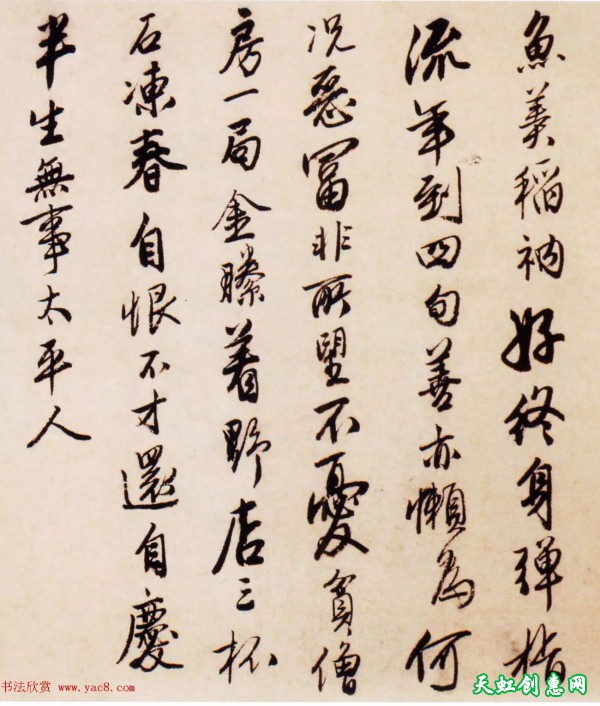 魚羹稻衲好終身彈指
流年到四旬善亦懶為何
况惡冨非所望不憂貧僧
房一局金縢着野店三杯
石凍春自恨不才還自慶
半生無事太平人
书法欣赏 www.yac8.com
天虹创惠网